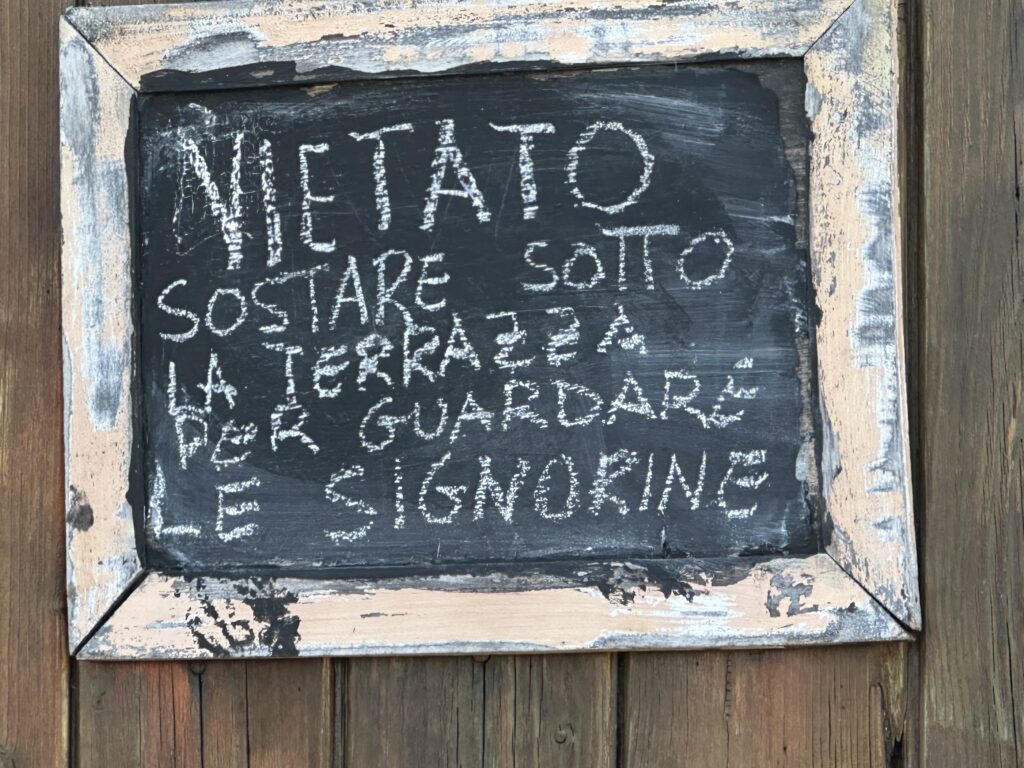 VIETATO
SOSTARE SOTTO
LA TERRAZZA
PER GUARDARE
LE SIGNORINE